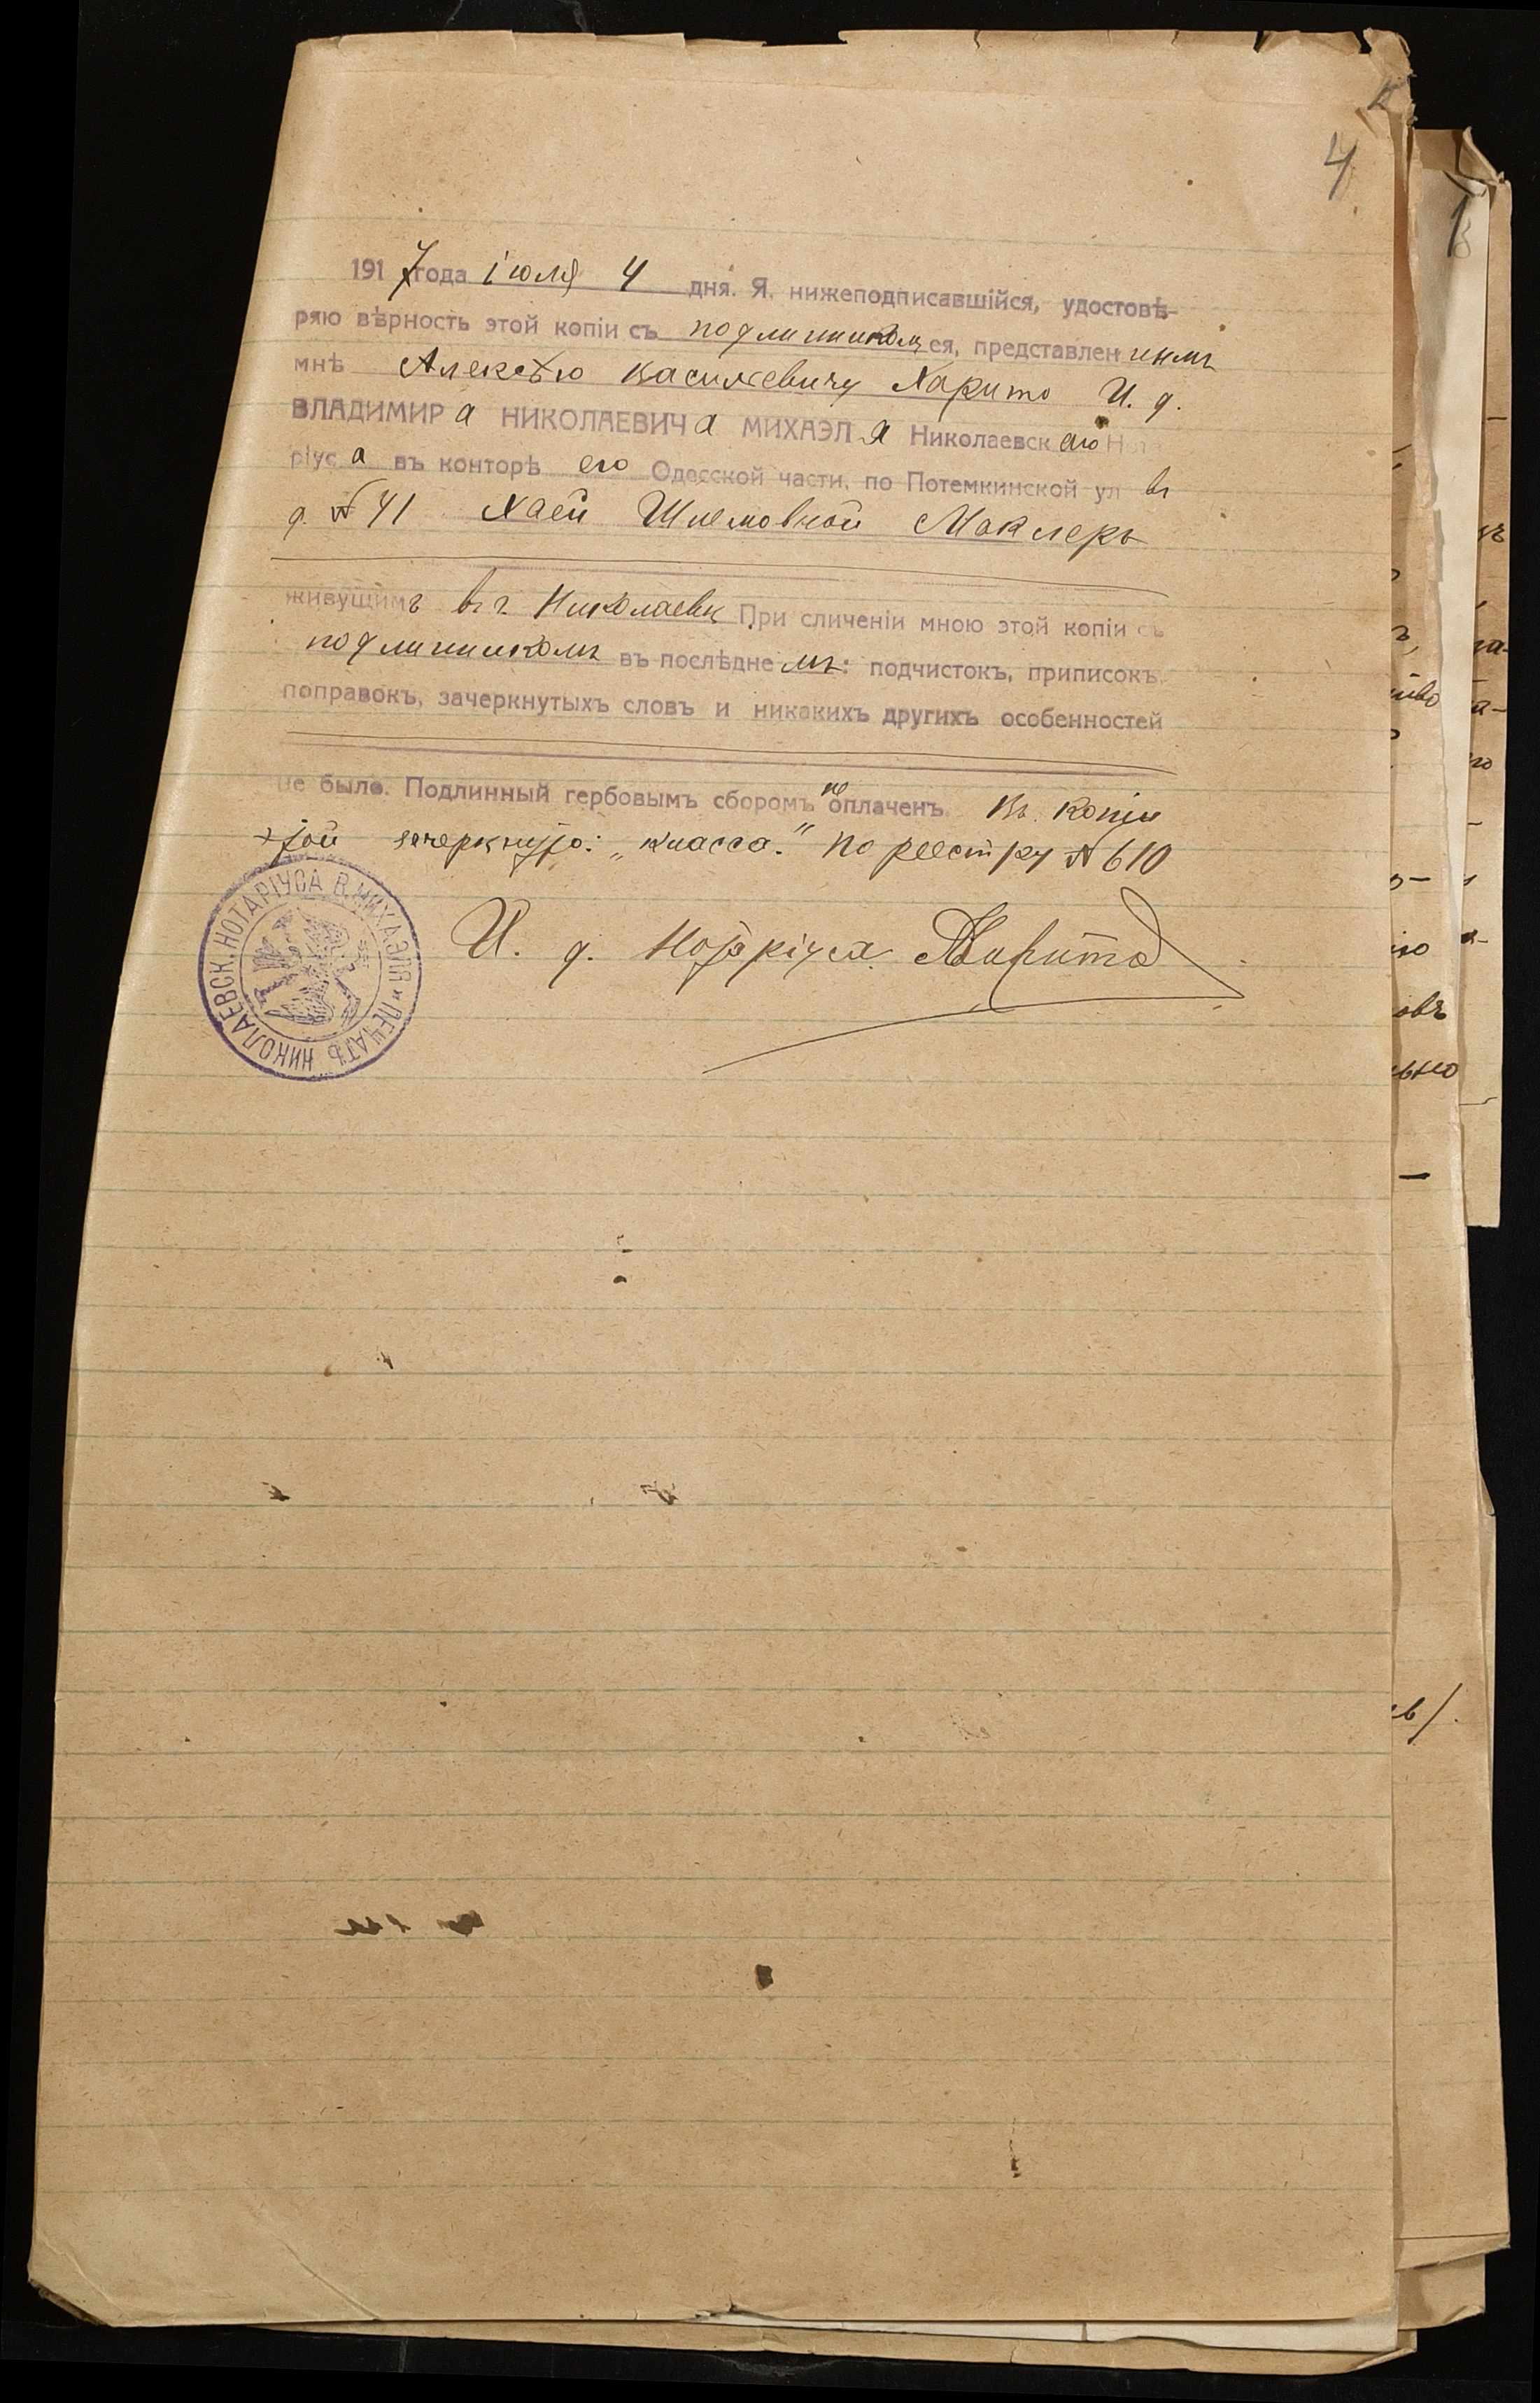 4
1917 года іюля 4 дня. Я, нижеподписавшійся, удостовѣ-
ряю вѣрность этой копіи съ подлинникомъ ея, представленнымъ
мнѣ Алексѣю Васильевичу Харито И. д.
ВЛАДИМИРа НИКОЛАЕВИЧа МИХАЭЛЯ Николаевскаго Нота
ріуса въ конторѣ его Одесской части, по Потемкинской ул въ
д. № 41 Хаей Шлемовной Маклеръ
живущимъ въ г. Николаевѣ При сличеніи мною этой копіи съ
подлинникомъ въ послѣднемъ: подчистокъ, приписокъ,
поправокъ, зачеркнутыхъ словъ и никакихъ другихъ особенностей
не было. Подлинный гербовымъ сборомъ не оплаченъ. Въ копіи
этой зачеркнуто: „класса." По реестру № 610
И. д. Нотаріуса Харито
НИКОЛАЕВСК. НОТАРІУСА В. МИХАЭЛЯ ПЕЧАТЬ